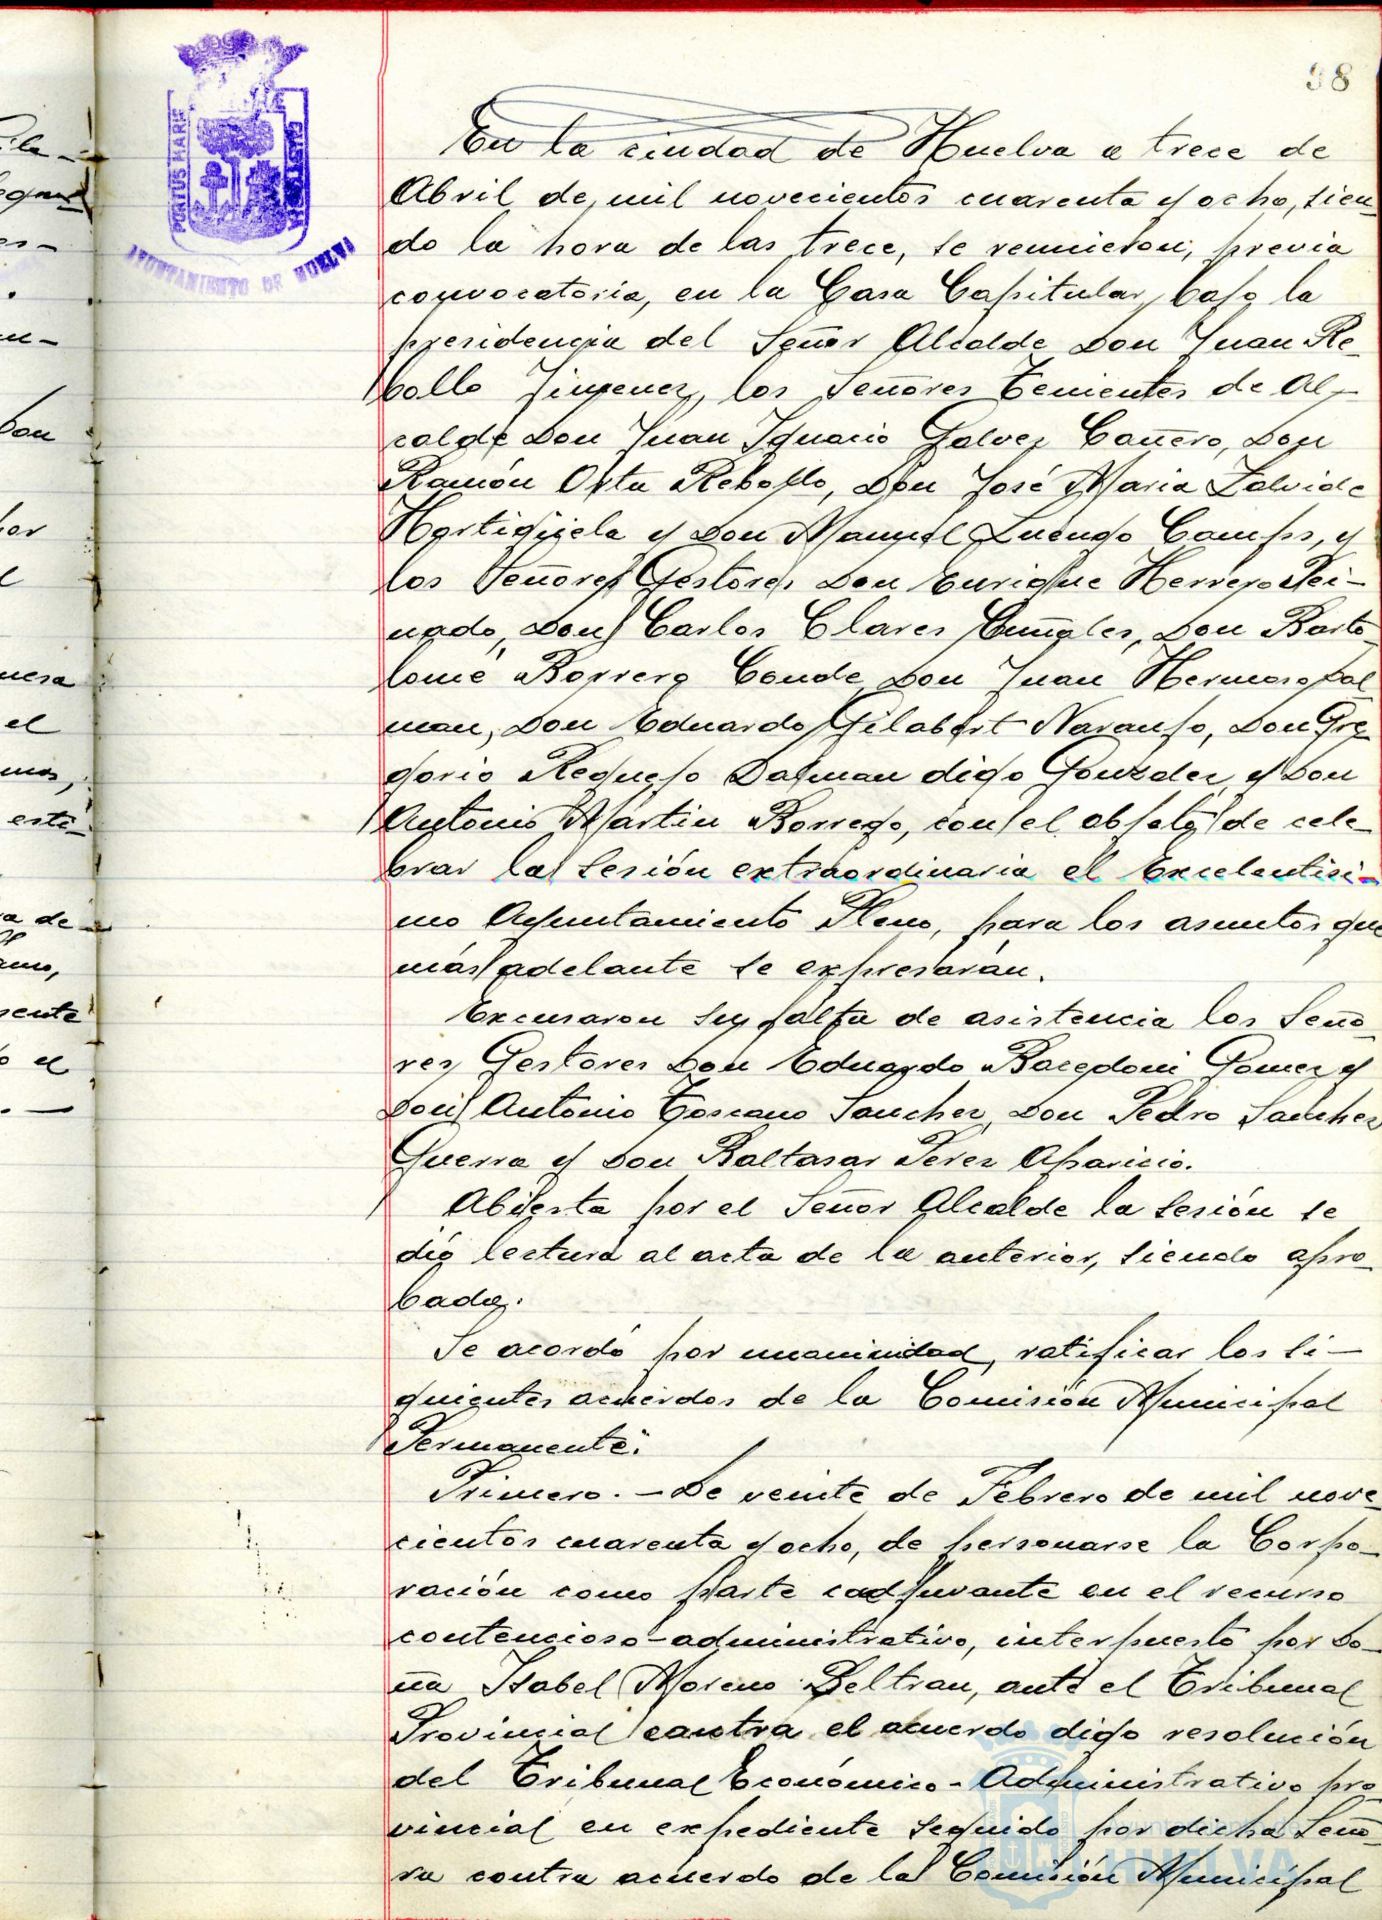 98
PORTUS MARIS
CUSTODIA
AYUNTAMIENTO DE HUELVA
En la ciudad de Huelva a trece de
Abril de mil novecientos cuarenta y ocho, sien-
do la hora de las trece, se reunieron, previa
convocatoria, en la Casa Capitular, bajo la
presidencia del Señor Alcalde Don Juan Re-
bollo Jimenez, los Señores Tenientes de Al-
calde Don Juan Ignacio Galvez Cañero, Don
Ramón Orta Rebollo, Don José Maria Zalvide
Hortigüela y Don Manuel Luengo Camps, y
los Señores Gestores Don Enrique Herrero Pei-
nado, Don Carlos Clares Cuñales, Don Barto-
lomé Borrero Conde, Don Juan Hermoso Dal-
man, Don Eduardo Gilabert Naranjo, Don Gre-
gorio Requejo Dalman digo Gonzalez y Don
Antonio Martin Borrego, con el objeto de cele-
brar la sesión extraordinaria el Excelentisi-
mo Ayuntamiento Pleno, para los asuntos que
más adelante se expresarán.
Excusaron su falta de asistencia los Seño-
res Gestores Don Eduardo Gomez y
Don Antonio Toscano Sanchez, Don Pedro Sanchez
Guerra y Don Baltasar Perez Aparicio.
Abierta por el Señor Alcalde la sesión se
dió lectura al acta de la anterior, siendo apro-
bada.
Se acordó por unanimidad, ratificar los si-
guientes acuerdos de la Comisión Municipal
Permanente:
Primero.- De veinte de Febrero de mil nove-
cientos cuarenta y ocho, de personarse la Corpo-
ración como parte coadjuvante en el recurso
contencioso-administrativo, interpuesto por Do-
ña Isabel Moreno Beltran, ante el Tribunal
Provincial contra el acuerdo digo resolución
del Tribunal Económico-Administrativo pro-
vincial en expediente seguido por dicha Seño-
ra contra acuerdo de la Comisión Municipal
HUELVA